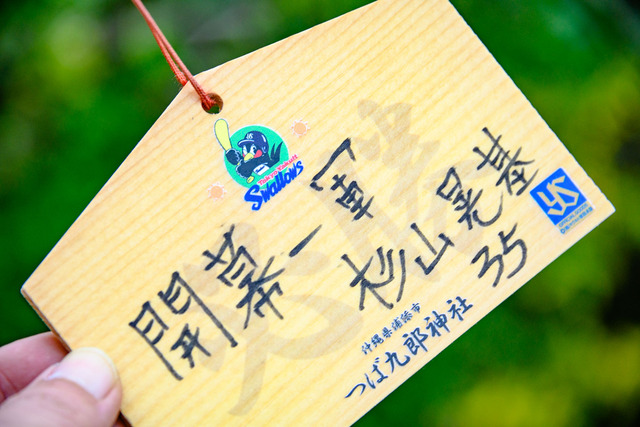 Swallows
開幕一軍
杉山晃基
35
沖縄県浦添市
つば九郎神社
YS